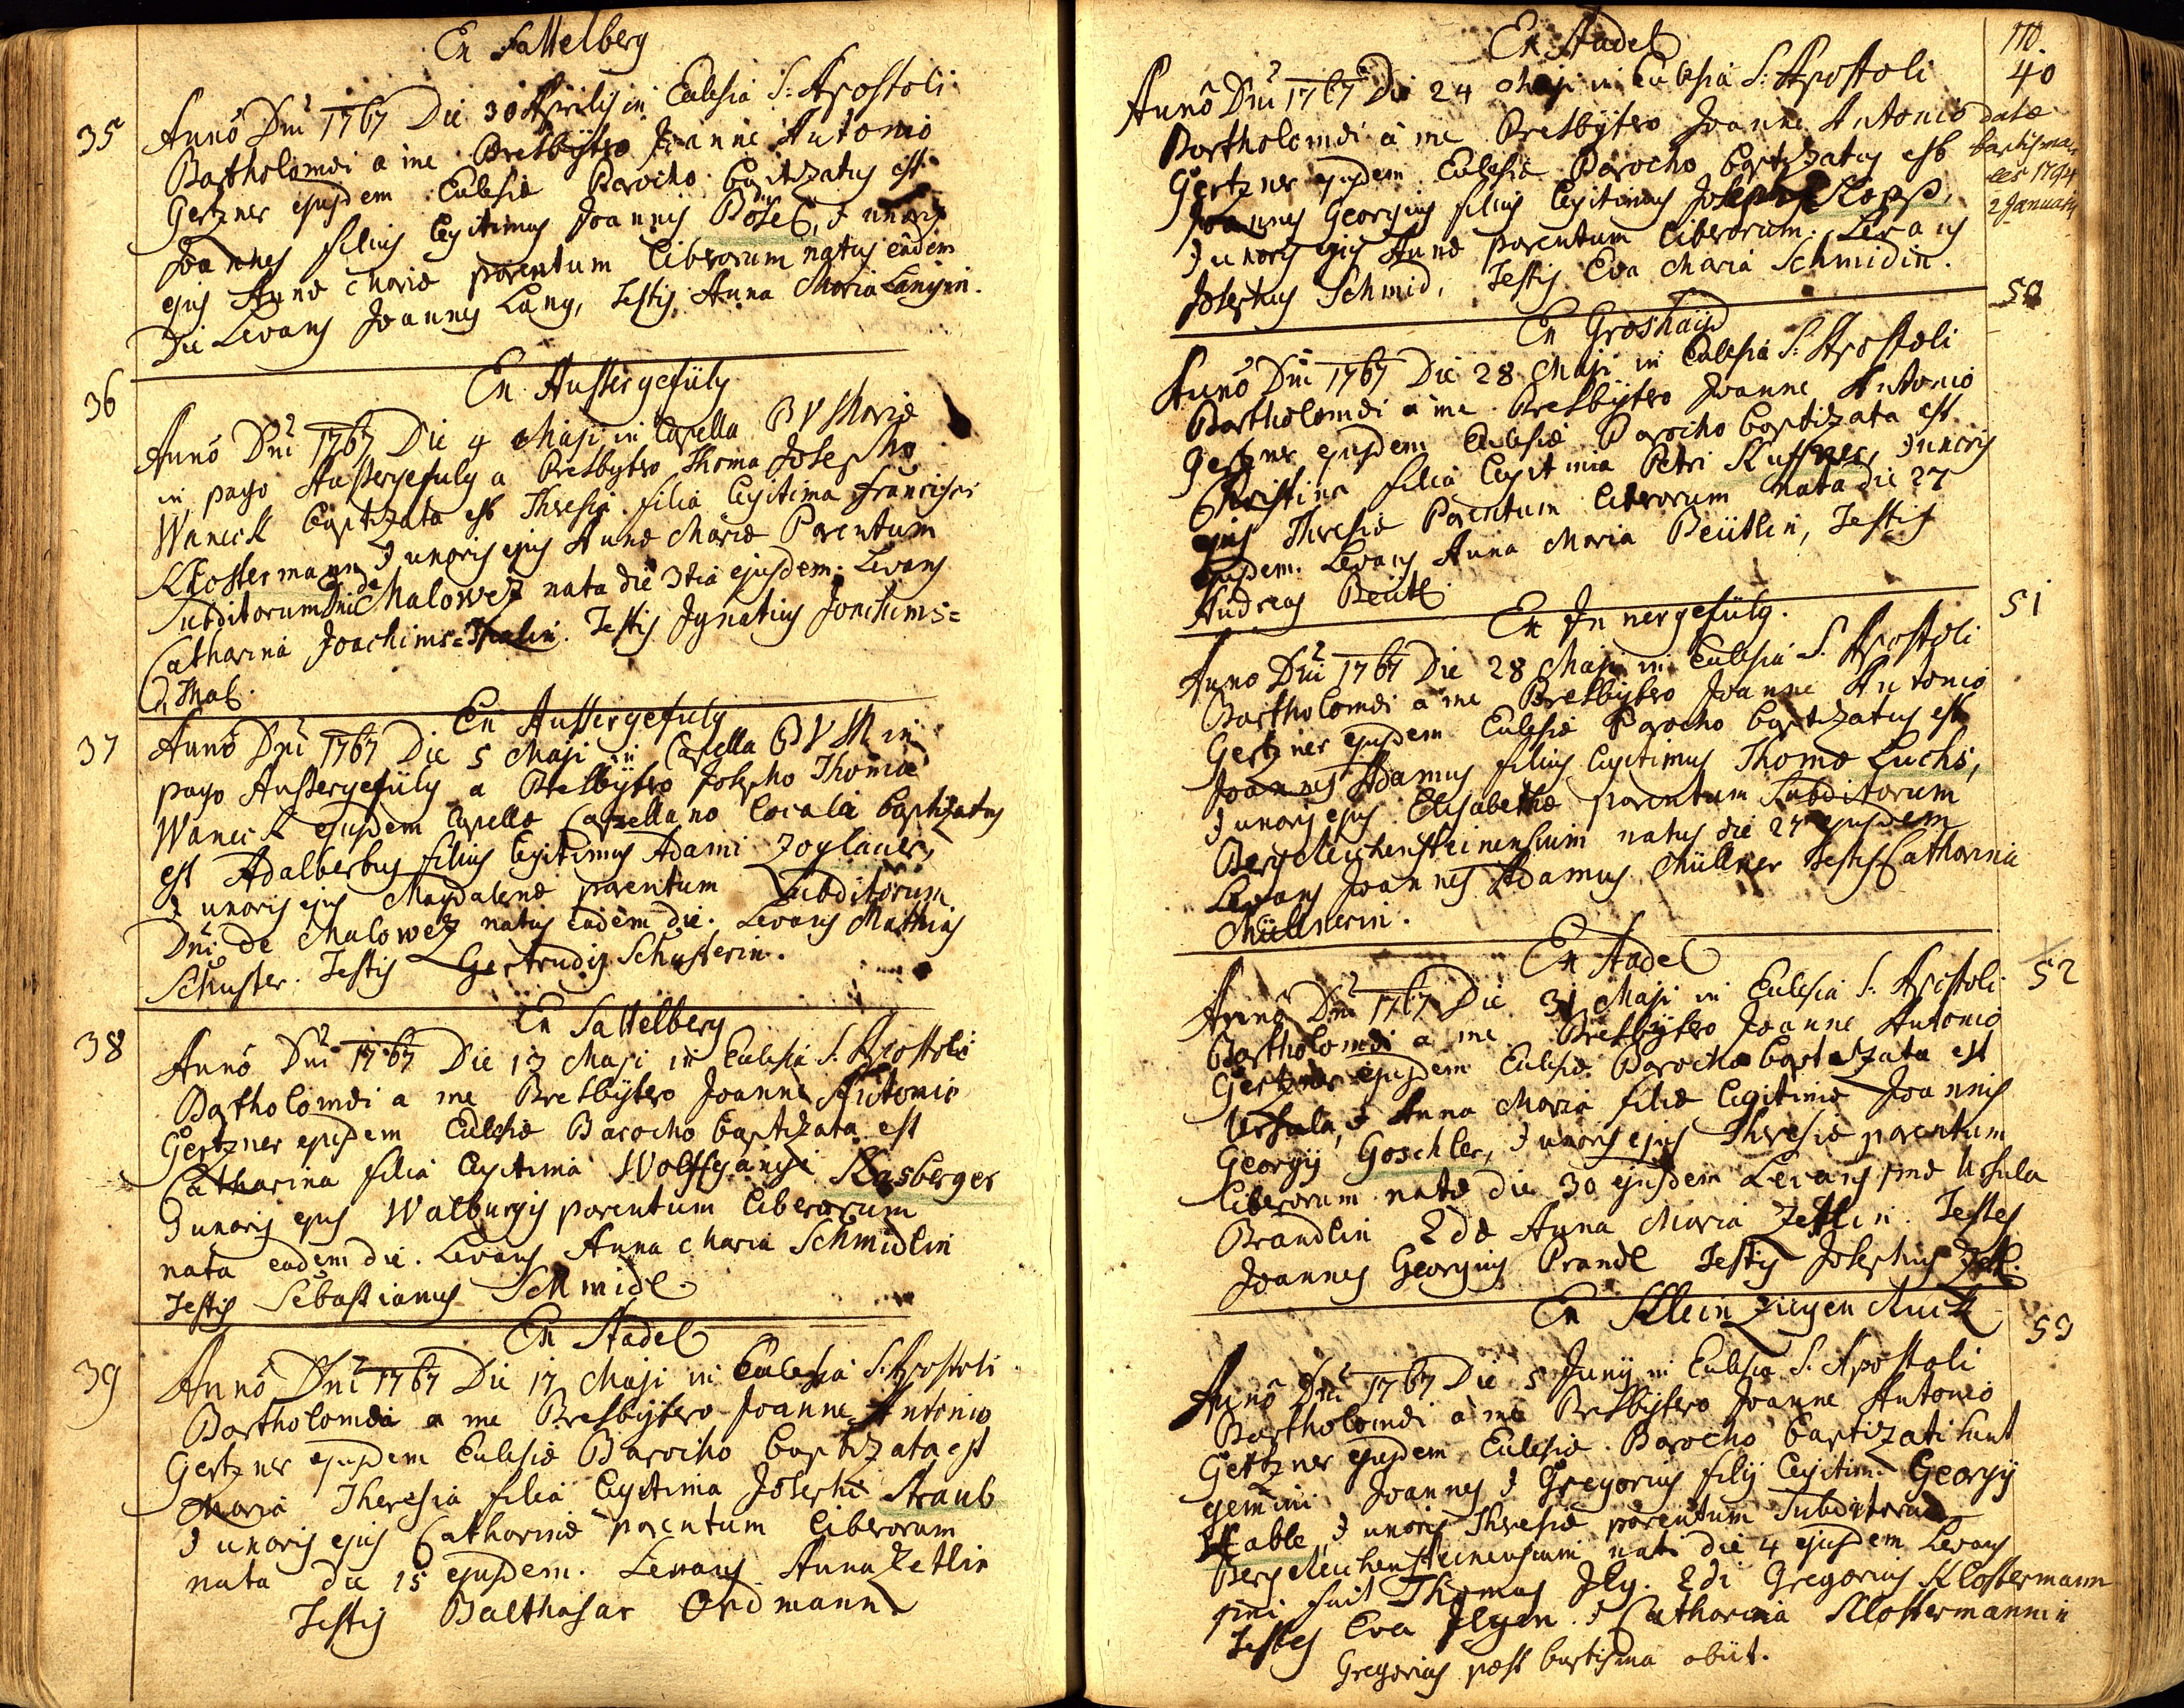 Ex Sattelberg
35
Anno Dni 1767 Die 30 Aprilis in Eclesia S: Apostoli
Bartholomæi a me Presbÿtero Joanne Antonio
Gertzner ejusdem Eclesiæ Parocho baptizatus est
Joannes filius legitimus Joannis Bösel, & uxoris
ejus Annæ Mariæ parentum liberorum natus eadem
Die Levans Joannes Lang, Testis Anna Maria Langin.
36
Ex Aussergefüly
Anno Dni 1767 Die 4 Maji in Capella B V Mariæ
in pago Aussergefuly a Presbytero Thoma Josepho
Wanick baptizata est Theresia filia legitima Francisci
Klostermann & uxoris ejus Annæ Mariæ Parentum
Subditorum Dni de Malowez nata die 3tia ejusdem. Levans
Catharina Joachims=Thalin. Testis Ignatius Joachims=
Thal.
37
Ex Aussergefuly
Anno Dni 1767 Die 5 Maji in Capella B V M in
pago Aussergefüly a Presbÿtero Josepho Thoma
Wanick ejusdem Capellæ Capellano locali baptizatus
est Adalbertus filius legitimus Adami Zoglauer,
& uxoris ejus Magdalenæ parentum Subditorum
Dni de Malowez natus eadem die. Levans Mathias
Schuster. Testis Gertrudis Schusterin.
38
Ex Sattelberg
Anno Dni 1767 Die 13 Maji in Eclesia S: Apostoli
Bartholomæi a me Presbÿtero Joanne Antonio
Gertzner ejusdem Eclesiæ Parocho baptizata est
Catharina filia legitima Wolffgangi Kasberger
& uxoris ejus Walburgis parentum liberorum
nata eadem die. Levans Anna Maria Schmidlin
Testis Sebastianus Schmidl
39
Ex Stadel
Anno Dni 1767 Die 17 Maji in Eclesia S: Apostoli
Bartholomæi a me Presbÿtero Joanne Antonio
Gertzner ejusdem Eclesiæ Parocho baptizata est
Maria Theresia filia legitima Josephi Straub
& uxoris ejus Catharinæ parentum liberorum
nata die 15 ejusdem. Levans Anna Zetlin
Testis Balthasar Ordmann
110.
Ex Stadel
40
Anno Dni 1767 Die 24 Maji in Eclesia S: Apostoli
Bartholomæi a me Presbÿtero Joanne Antonio
Gertzner ejusdem Eclesiæ Parocho baptizatus est
Joannes Georgius filius legitimus Josephi
& uxoris ejus Annæ parentum liberorum. Levans
Josephus Schmid, Testis Eva Maria Schmidin.
datæ
baptismales 1794
2 Januarii
50
Ex Groshaÿd
Anno Dni 1767 Die 28 Maji in Eclesia S: Apostoli
Bartholomæi a me Presbÿtero Joanne Antonio
Gertzner ejusdem Eclesiæ Parocho baptizata est
Christina filia legitima Petri Kuffner, & uxoris
ejus Theresiæ Parentum liberorum nata die 27
ejusdem. Levans Anna Maria Beütlin, Testis
Andreas Beütl
51
Ex Innergefüly.
Anno Dni 1767 Die 28 Maji in Eclesia S. Apostoli
Bartholomæi a me Presbÿtero Joanne Antonio
Gertzner ejusdem Eclesiæ Parocho baptizatus est
Joannes Adamus filius legitimus Thomæ Luchs,
& uxoris ejus Elisabethæ parentum Subditorum
Bergreichensteinensium natus die 27 ejusdem
Levans Joannes Adamus Müllner Testis Catharina
Müllnerin.
52
Ex Stadel
Anno Dni 1767 Die 31 Maji in Eclesia S: Apostoli
Bartholomæi a me Presbÿtero Joanne Antonio
Gertzner ejusdem Eclesiæ Parocho baptizata est
Ursula, & Anna Maria filiæ legitimæ Joannis
Georgÿ Goschler, & uxoris ejus Theresiæ parentum
liberorum natæ die 30 ejusdem Levans 1mæ Ursula
Brandlin 2dæ Anna Maria Zettlin. Testes
Joannes Georgius Prandl Testis Josephus Zettl.
53
Ex Klein Ziegen Ruck
Anno Dni 1767 Die 5 Junÿ in Eclesia S. Apostoli
Bartholomæi a me Presbÿtero Joanne Antonio
Gertzner ejusdem Eclesiæ Parocho baptizati sunt
gemini Joannes & Gregorius filÿ legitim. Georgÿ
& uxoris Theresiæ parentum Subditorum
Bergreichensteinensium nati die 4 ejusdem Levans
1mi fuit Thomas Ilg. 2di Gregorius Klostermann
Testes Eva Ilgin & Catharina Klostermannin
Gregorius post baptisma obiit.